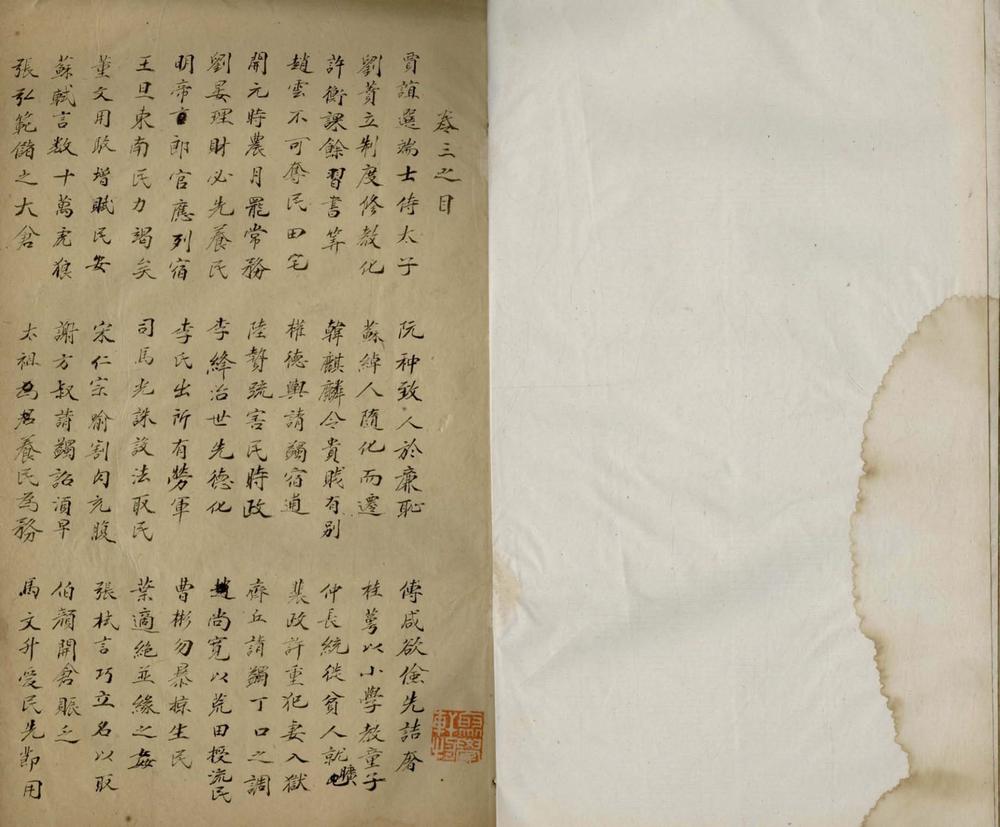 卷三之目
賈誼選端士侍太子　阮种致人於廉恥　傅咸欲儉先詰奢
劉蕡立制度修教化　蘇綽人隨化而遷　桂萼以小學教童子
許衡課餘習書筭　韓麒麟令貴賤有别　仲長統徙貧人就曠
趙雲不可奪民田宅　權德輿請蠲宿逋　裴政許重犯妻入獄
開元時農月罷常務　陸贄䟽害民時政　齊丘請蠲丁口之調
劉晏理財必先養民　李絳治世先德化　趙尚寛以荒田授流民
明帝言郎官應列宿　李氏出所有勞軍　曹彬勿暴掠生民
王旦東南民力竭矣　司馬光誅設法取民　葉適絶並緣之姦
董文用增賦民安　宋仁宗喻割肉充腹　張栻言巧立名以取
蘇軾言数十萬虎狼　謝方叔請蠲詔須早　伯顔開倉賑乏
張弘範儲之大倉　太祖為君養民為務　馬文升愛民先節用